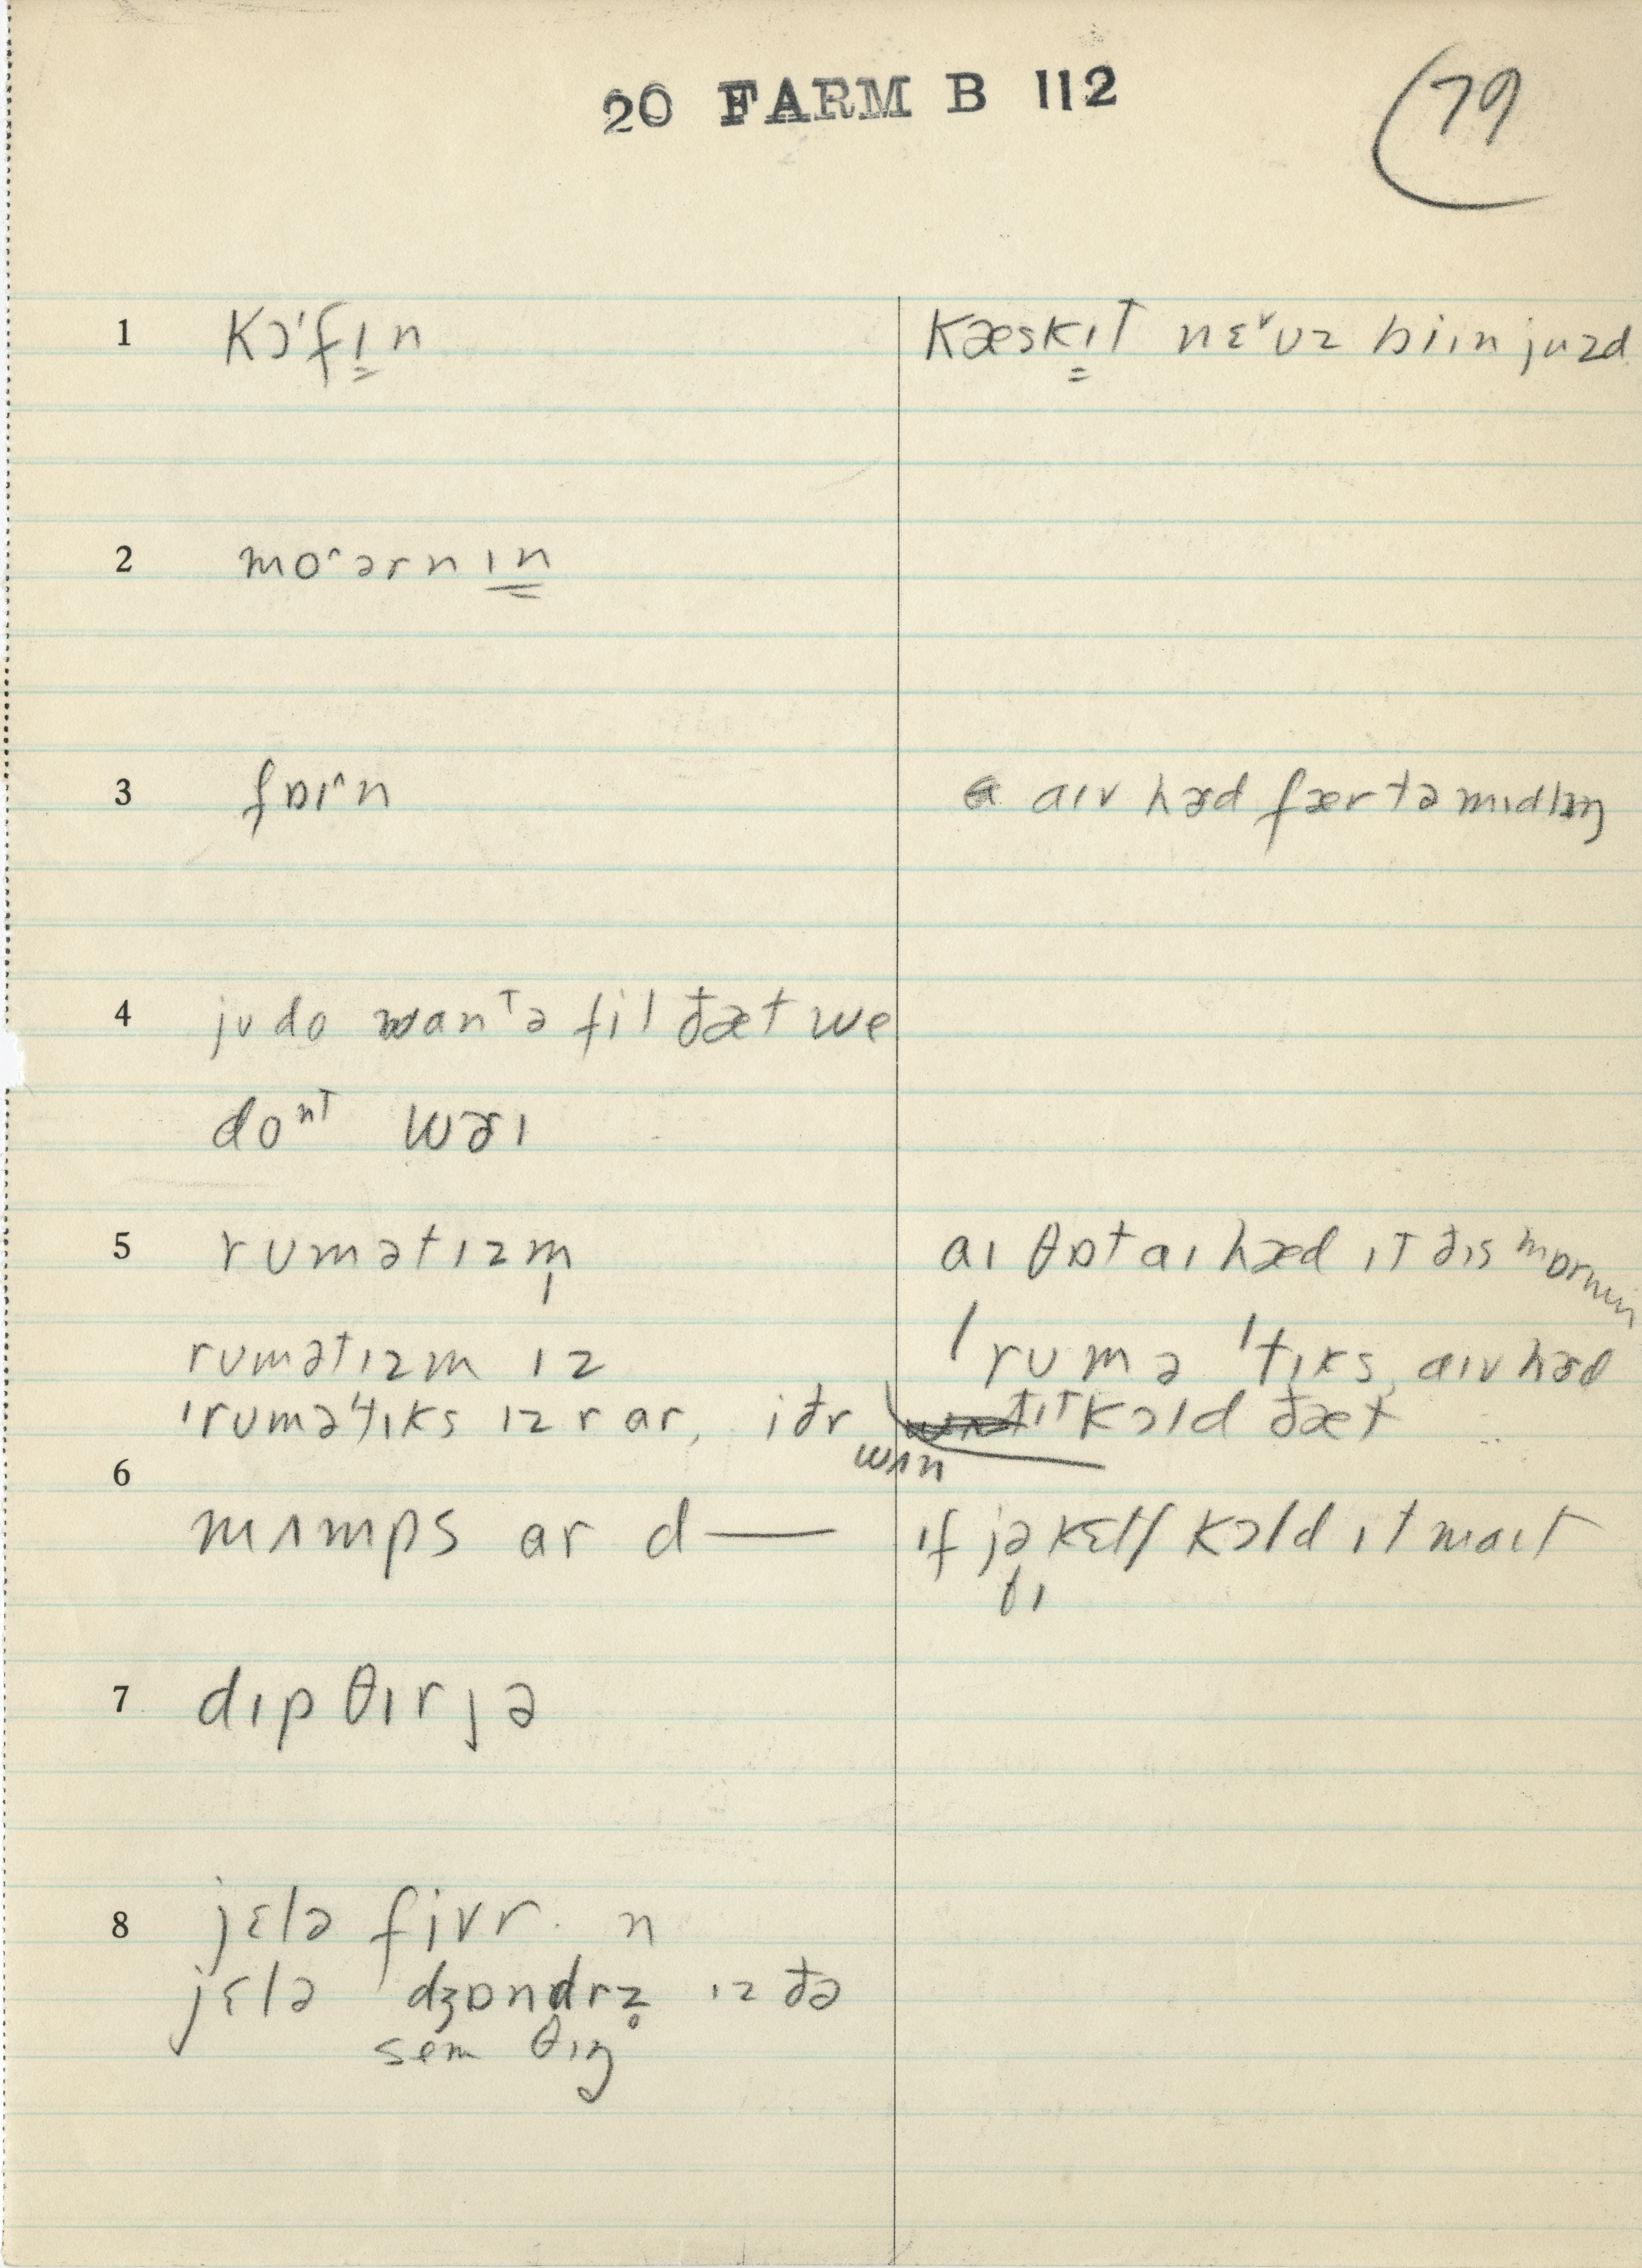 20 FARM B 112
79
1 kɔ'fɪn kæskɪt nɛ˅vz biɪn juzd
2 mo^ərnɪn
3 fɒɪ^n aɪv hæd færtəmɪdlɪŋ
4 ju do wanᵗə fil ðæt we
doⁿᵗ wərɪ
5 rumətɪzm̩ aɪ θɒt aɪ hæd ɪt ðɪs mɒrnɪn
rumətɪzm ɪz ˈrumə ˈtɪks, aɪv hæd
ˈruməˈtɪks ɪz r ar, iðr wʌn ðɪt kɔld ðæt
6 mʌmps ar d— ɪf jə kɛtʃ kɔld ɪt maɪt
bɪ
7 dɪpθɪrjə
8 jɛlə fivr. n
jɛlə dʒɒndrz̥ ɪz ðə
sem θɪŋ